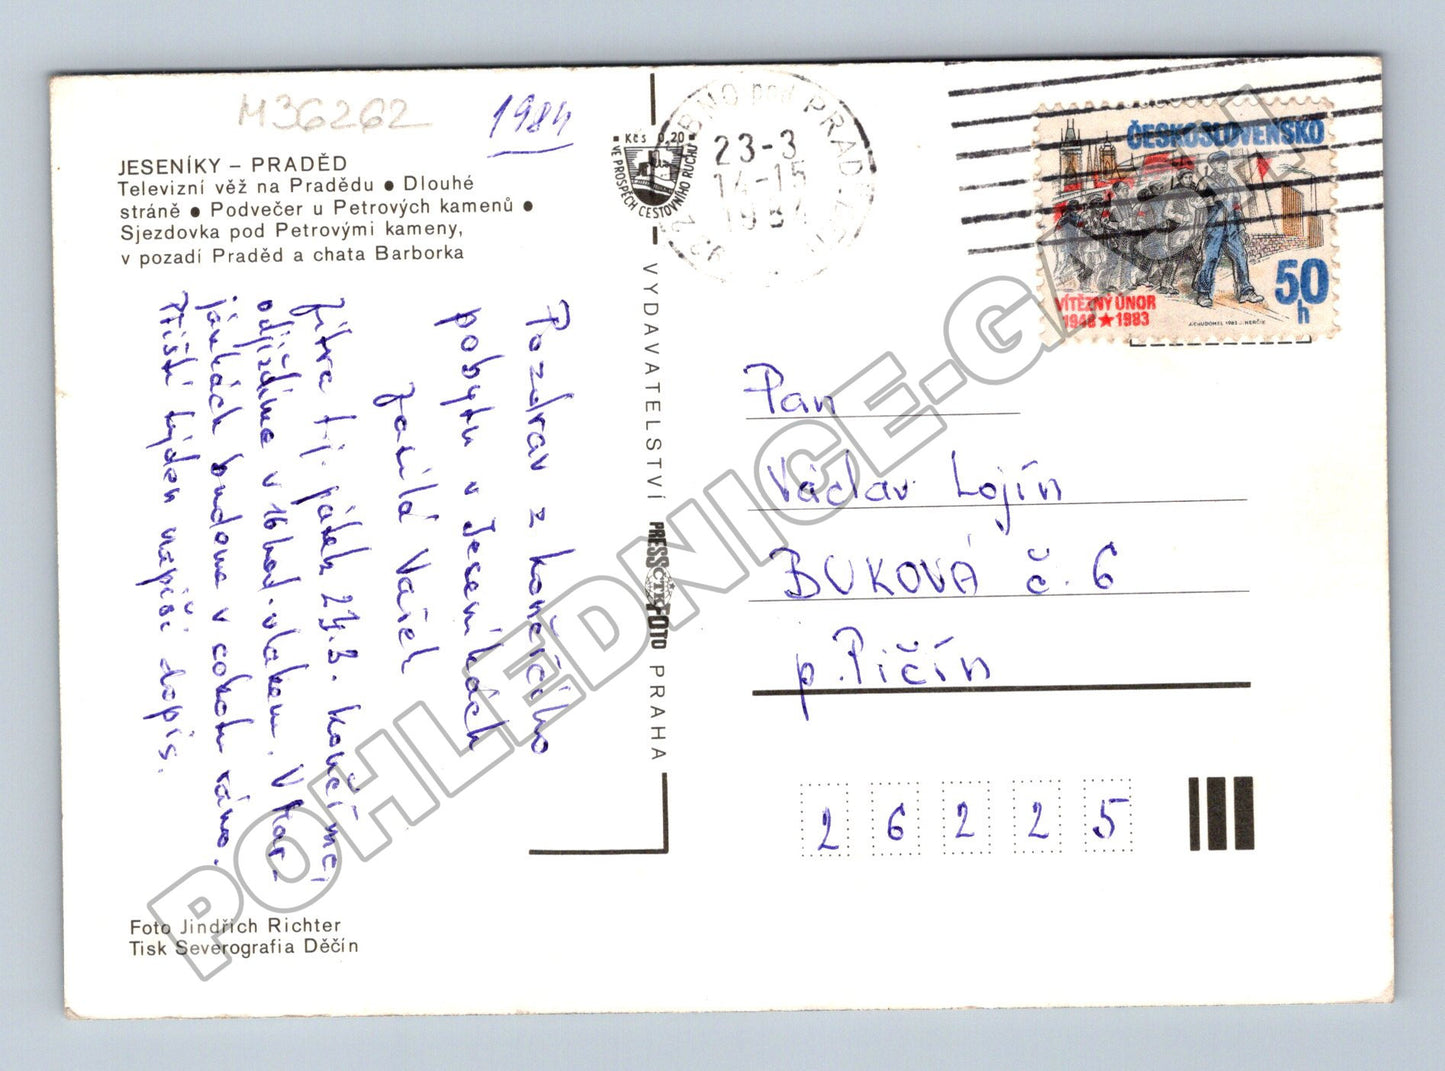 M36262
1984
JESENÍKY – PRADĚD
Televizní věž na Pradědu ● Dlouhé
stráně ● Podvečer u Petrových kamenů ●
Sjezdovka pod Petrovými kameny,
v pozadí Praděd a chata Barborka
Kčs 0,20
VE PROSPĚCH CESTOVNÍHO RUCHU
23-3
14-15
1984
ČESKOSLOVENSKO
VÍTĚZNÝ ÚNOR
1948 ★ 1983
50 h
Pozdrav z konečného
pobytu v Jeseníkách
zasílá Vašek
Zítra tj. pátek 23.3. končíme i
odjíždíme v 16 hod. vlakem. V Kar-
budeme v ráno.
Příští týden napíši dopis.
VYDAVATELSTVÍ PRESSČTKFOTO PRAHA
Pan
Václav Lojín
BUKOVÁ č. 6
p. Pičín
26225
Foto Jindřich Richter
Tisk Severografia Děčín
POHLEDNICE-GALAXIE